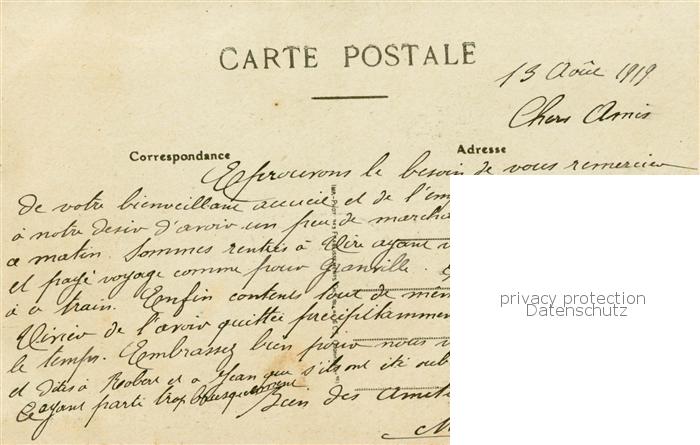 CARTE POSTALE
13 Août 1919
Chers Amis
Correspondance
Adresse
Eprouvons le besoin de vous remercier
de votre bienveillant accueil et de l'em
à notre désir d'avoir un peu de marcha
ce matin. Sommes rentrés à Vire ayant
et payé voyage comme pour Granville.
à ce train. Enfin contents tout de mêm
Virien de l'avoir quittée précipitammen
le temps. Embrassez bien pour nous
et dites à Robert et à Jean que s'ils ont été oub
ayant parti trop brusquement. Bien des Amit
privacy protection
Datenschutz